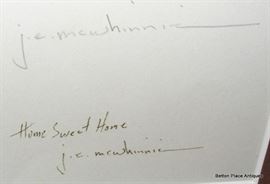 j.e. mcwhinnie
Home Sweet Home
j.e. mcwhinnie
Betton Place Antiques